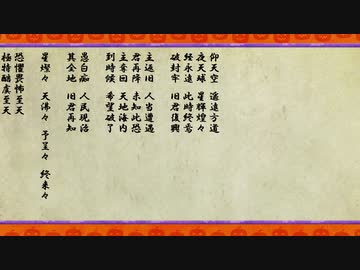 仰天空 遥遠方道
夜天球 星輝煌々
経永遠 此時終焉
破封牢 旧君復興
主返旧 人当遭遇
君再降 未知此恐
主奪回 天地海内
到時候 希望破了
愚白痴 人民現活
其全地 旧君再知
星燦々 天沸々 予呈々 終来々
恐懼畏怖至天
極特酷虐至天